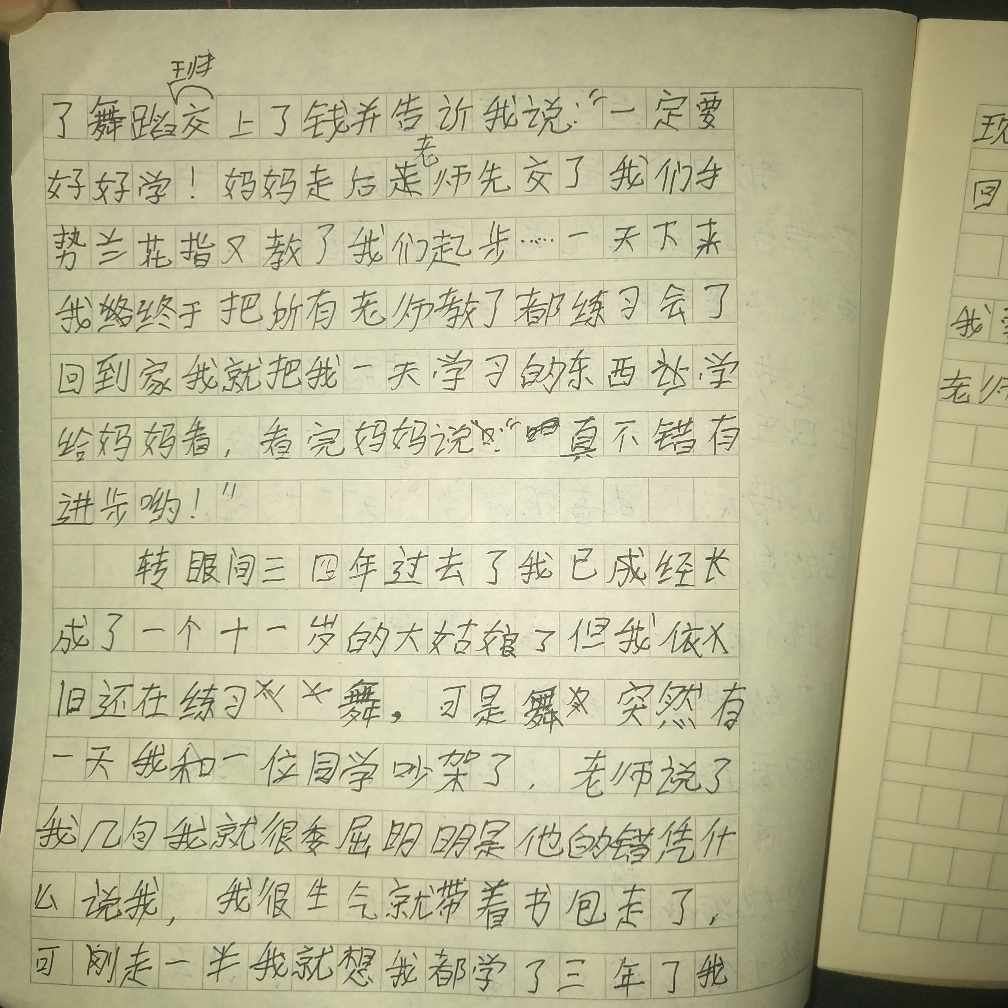 了舞蹈班交上了钱并告诉我说:“一定要
好好学!妈妈走后老师先交了我们手
势兰花指又教了我们起步……一天下来
我终于把所有老师教了都练习会了
回到家我就把我一天学习的东西学
给妈妈看,看完妈妈说:“真不错有
进步哟!”
转眼间三四年过去了我已成经长
成了一个十一岁的大姑娘了但我依
旧还在练习舞,可是舞突然有
一天我和一位同学吵架了.老师说了
我几句我就很委屈明明是他的错凭什
么说我,我很生气就带着书包走了.
可刚走一半我就想我都学了三年了我
现
回
我
老师